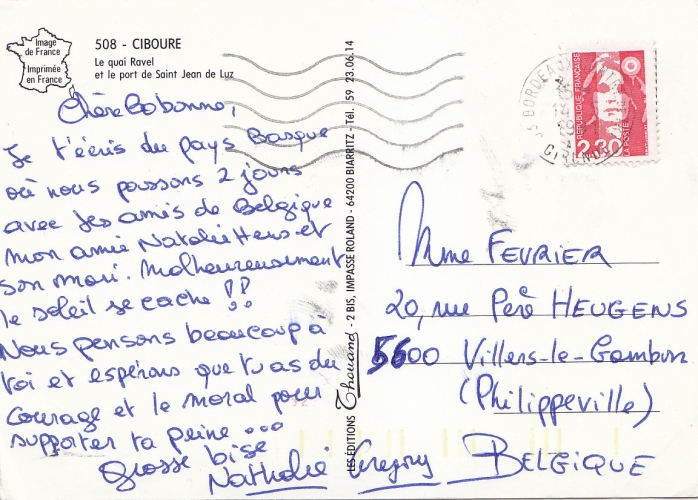 Image
de France
Imprimée
en France
508 - CIBOURE
Le quai Ravel
et le port de Saint Jean de Luz
Chère Bobonne,
Je t'écris du pays Basque
où nous passons 2 jours
avec des amis de Belgique
mon amie Nathalie Hens et
son mari. Malheureusement
le soleil se cache !!
Nous pensons beaucoup à
toi et espérons que tu as du
courage et le moral pour
supporter ta peine ...
Grosse bise
Nathalie Gregory
LES ÉDITIONS Thouand - 2 BIS, IMPASSE ROLAND - 64200 BIARRITZ - Tél. 59 23.06.14
BORDEAUX
GIRONDE
REPUBLIQUE FRANÇAISE
2,30
LA POSTE
Mme FEVRIER
20, rue Père HEUGENS
5600 Villers-le-Gambon
(Philippeville)
BELGIQUE